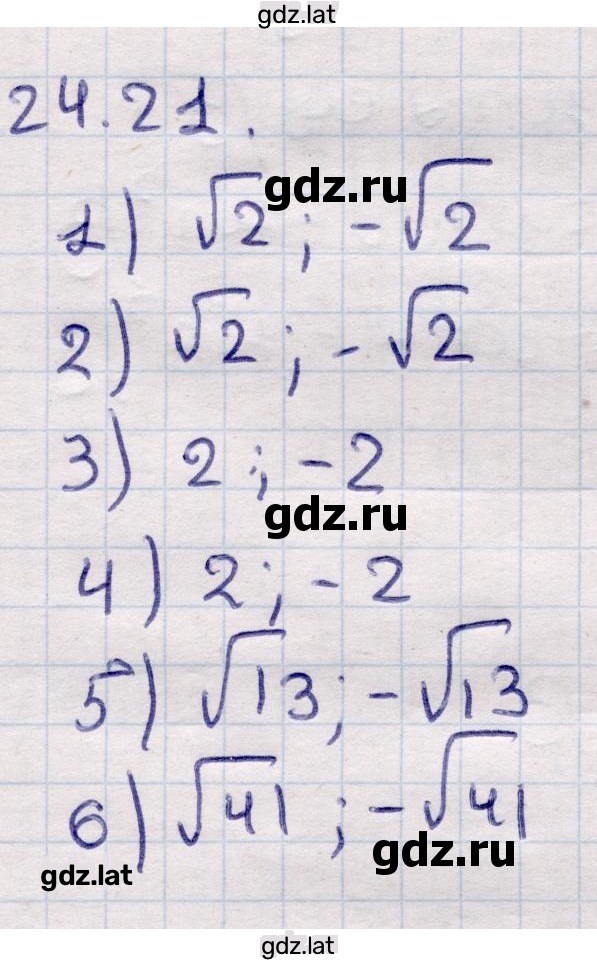 gdz.lat
24.21.
gdz.ru
1) √2 ; -√2
2) √2 ; -√2
3) 2 ; -2
gdz.ru
4) 2 ; -2
5) √13 ; -√13
6) √41 ; -√41
gdz.ru
gdz.lat
gdz.lat